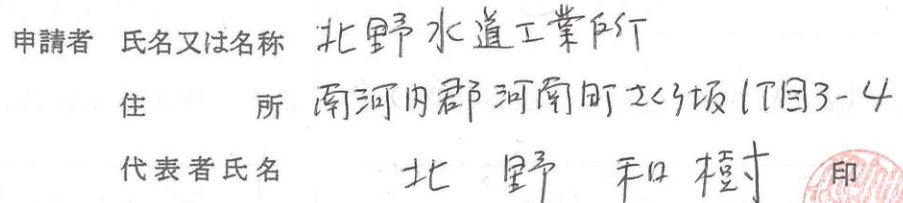 申請者 氏名又は名称 北野水道工業所
住所 南河内郡河南町さくら坂1丁目3-4
代表者氏名 北野和樹 印